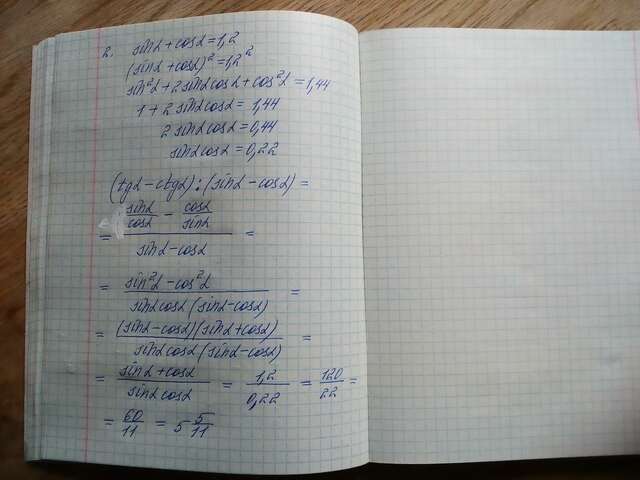 2. sinα + cosα = 1,2
(sinα + cosα)² = 1,2²
sin²α + 2 sinα cosα + cos²α = 1,44
1 + 2 sinα cosα = 1,44
2 sinα cosα = 0,44
sinα cosα = 0,22
(tgα − ctgα) : (sinα − cosα) =
= (sinα/cosα − cosα/sinα)/(sinα − cosα) =
= (sin²α − cos²α)/(sinα cosα (sinα − cosα)) =
= ((sinα − cosα)(sinα + cosα))/(sinα cosα (sinα − cosα)) =
= (sinα + cosα)/(sinα cosα) = 1,2/0,22 = 120/22 =
= 60/11 = 5 5/11